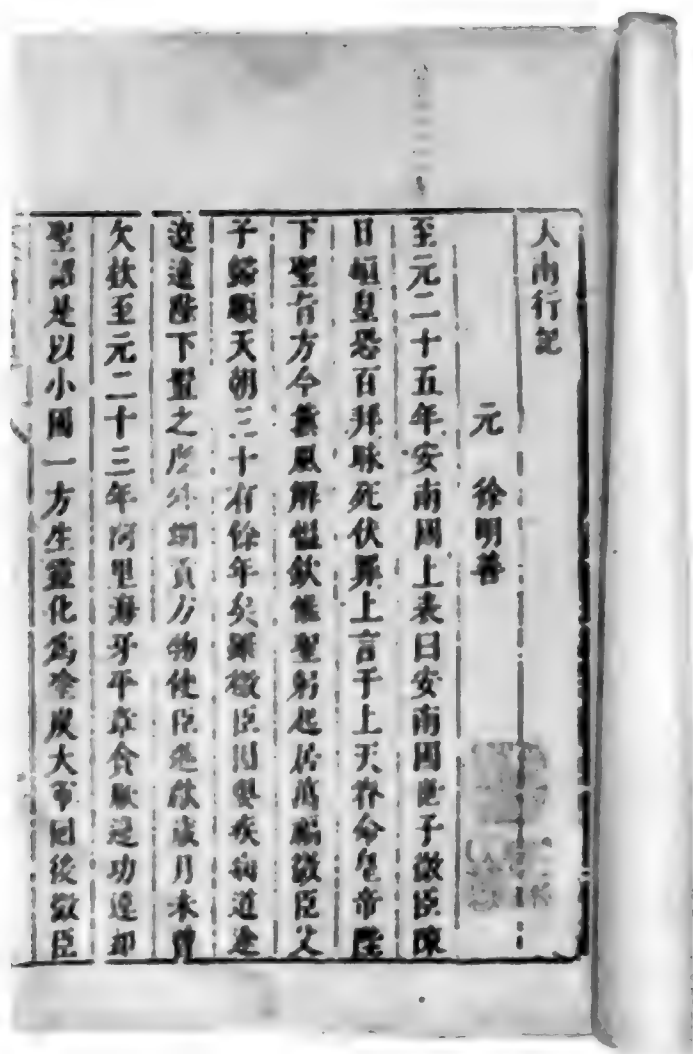 天南行記
元 徐明善
至元二十五年安南國上表曰安南國世子微臣陳
日烜惶恐百拜昧死伏罪上言于上天眷命皇帝陛
下聖旨方今薰風解慍欽惟聖躬起居萬福微臣父
子歸順天朝三十有餘年矣雖微臣因嬰疾病道途
遼遠陛下置之度外納貢方物使臣進獻歲月未嘗
欠缺至元二十三年阿里海牙平章貪厭邊功違却
聖詔是以小國一方生靈化為塗炭大軍回後微臣